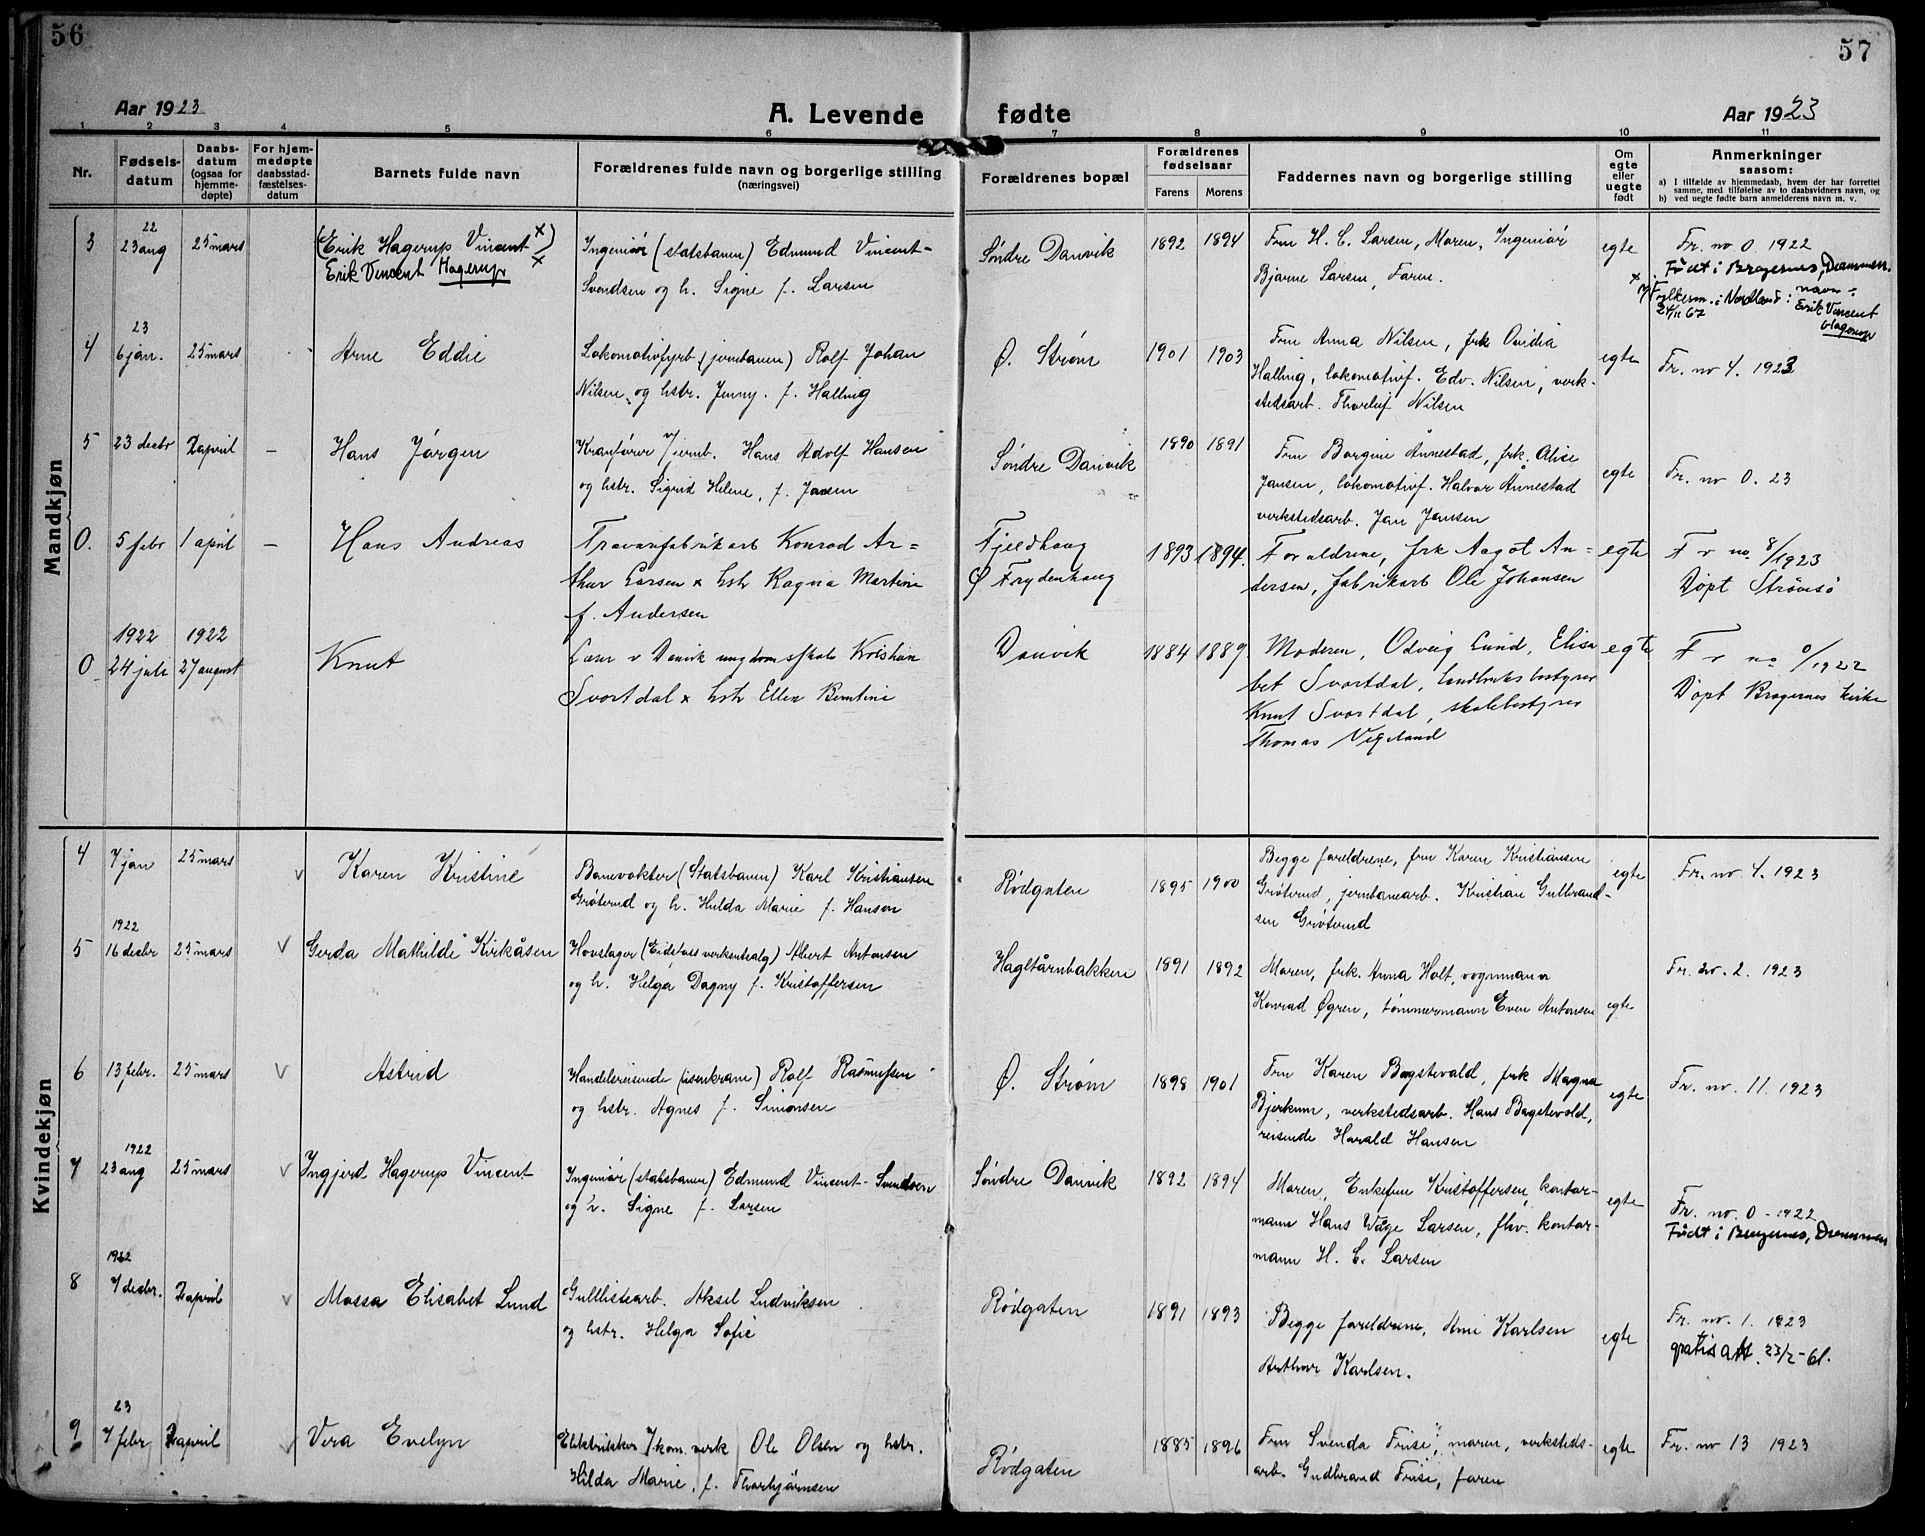 56
57
Aar 1923
A. Levende fødte
Aar 1923
1 2 3 4 5 6 7 8 9 10 11
Nr.
Fødsels-
datum
Daabs-
datum
(ogsaa for
hjemme-
døpte)
For hjem-
medøpte
daabsstad-
fæstelses-
datum
Barnets fulde navn
Forældrenes fulde navn og borgerlige stilling
(næringsvei)
Forældrenes bopæl
Forældrenes
fødselsaar
Farens
Morens
Faddernes navn og borgerlige stilling
Om
egte
eller
uegte
født
Anmerkninger
saasom:
a) I tilfælde av hjemmedaab, hvem der har forrettet
samme, med tilføielse av to daabsvidners navn, og
b) ved uegte fødte barn anmelderens navn m. v.
Mandkjøn
3 22 23 aug 25 mars (Erik Hagerup Vincent x)
Erik Vincent Hagerup x
Ingeniör (statsbanen) Edmund Vincent-
Svendsen og h. Signe f. Larsen
Søndre Danvik 1892 1894
Fru H. C. Larsen, Moren, Ingeniör
Bjarne Larsen, Faren.
egte
Fr. no 0 1922
Født i Bragernes, Drammen.
x) Fylkesm. i Nordland: navn:
24/11 67 Erik Vincent
Hagerup
4 23 6 jan. 25 mars Arne Eddie
Lokomotivfyrb. (jernbanen) Rolf Johan
Nilsen og hstr. Jenny. f. Halling
Ø. Strøm 1901 1903
Fru Anna Nilsen, frk Ovidia
Halling, lokomotivf. Edv. Nilsen, verk-
stedsarb. Thorleif Nilsen
egte
Fr. no 4. 1923
5 23 decbr 2 april – Hans Jørgen
Kranfører v/jernb. Hans Adolf Hansen
og hstr. Sigrid Helene, f. Jansen
Søndre Danvik 1890 1891
Fru Borgine Ånnestad, frk. Alise
Jansen, lokomotivf. Halvor Ånnestad
verkstedsarb. Jan Jansen
egte
Fr. no 0. 23
0. 5 febr 1 april – Hans Andreas
Trævarefabrikarb Konrad Ar=
thur Larsen x hstr Ragna Martine
f. Andersen
Fjeldhaug
Ø Frydenhaug
1893 1894.
Forældrene, frk Aagot An=
dersen, fabrikarb Ole Johansen
egte
Fr no. 8/1923
Døpt Strømsø
1922 1922
0 24 juli 27 august Knut
Lærer v Danvik ungdomsskole Kristian
Svortdal x hstr Ellen Berntine
Danvik 1884 1889
Moderen, Odveig Lund, Elisa
bet Svortdal, landbruksbestyrer
Knut Svortdal, skolebestyrer
Thomas Vigeland
egte
Fr no 0/1922
Døpt Bragernes kirke
Kvindekjøn
4 7 jan 25 mars v Karen Kristine
Banevokter (Statsbanen) Karl Kristiansen
Grøterud og h. Hulda Marie f. Hanson
Rødgaten 1895 1900
Begge foreldrene, fru Karen Kristiansen
Grøterud, jernbanearb. Kristian Gulbrand-
sen Grøterud
egte
Fr. no 4. 1923
1922
5 16 decbr 25 mars v Gerda Mathilde Kirkåsen
Hovslager (Eidsfoss verksutsalg) Albert Antonsen
og h. Helga Dagny f. Kristoffersen
Hagltårnbakken 1891 1892
Moren, frk. Anna Holt, vognmann
Konrad Øgren, tømmermann Even Antonsen
egte
Fr. no. 2. 1923
6 13 febr. 25 mars v Astrid
Handelsreisende (isenkram) Rolf Rasmussen
og hstr. Agnes f. Simonsen
Ø. Strøm 1898 1901
Fru Karen Bagstevold, frk Magna
Bjerkum, verkstedsarb. Hans Bagstevold,
reisende Harald Hansen
egte
Fr. no. 11. 1923
1922
7 23 aug 25 mars v Ingjerd Hagerup Vincent
Ingeniør (statsbanen) Edmund Vincent-Svendsen
og h. Signe f. Larsen
Søndre Danvik 1892 1894
Moren, Enkefru Kristoffersen, kontor-
mann Hans Wåge Larsen, fhv. kontor-
mann H. C. Larsen
egte
Fr. no. 0 - 1922
Født i Bragernes, Drammen
1922
8 7 decbr. 2 april v Massa Elisabet Lund
Gullistearb. Aksel Ludviksen
og hstr. Helga Sofie
Rødgaten 1891 1893
Begge foreldrene, Arne Karlsen
Arthur Karlsen.
egte
Fr. no. 1. 1923
gratis att. 23/2-61.
23
9 7 febr 2 april v Vera Evelyn
Elektriker v/kom. verk Ole Olsen og hstr.
Hilda Marie, f. Thorbjørnsen
Rødgaten 1885 1896
Fru Svenda Friise, moren, verksteds-
arb. Gudbrand Friise, faren
egte
Fr. no 13 1923